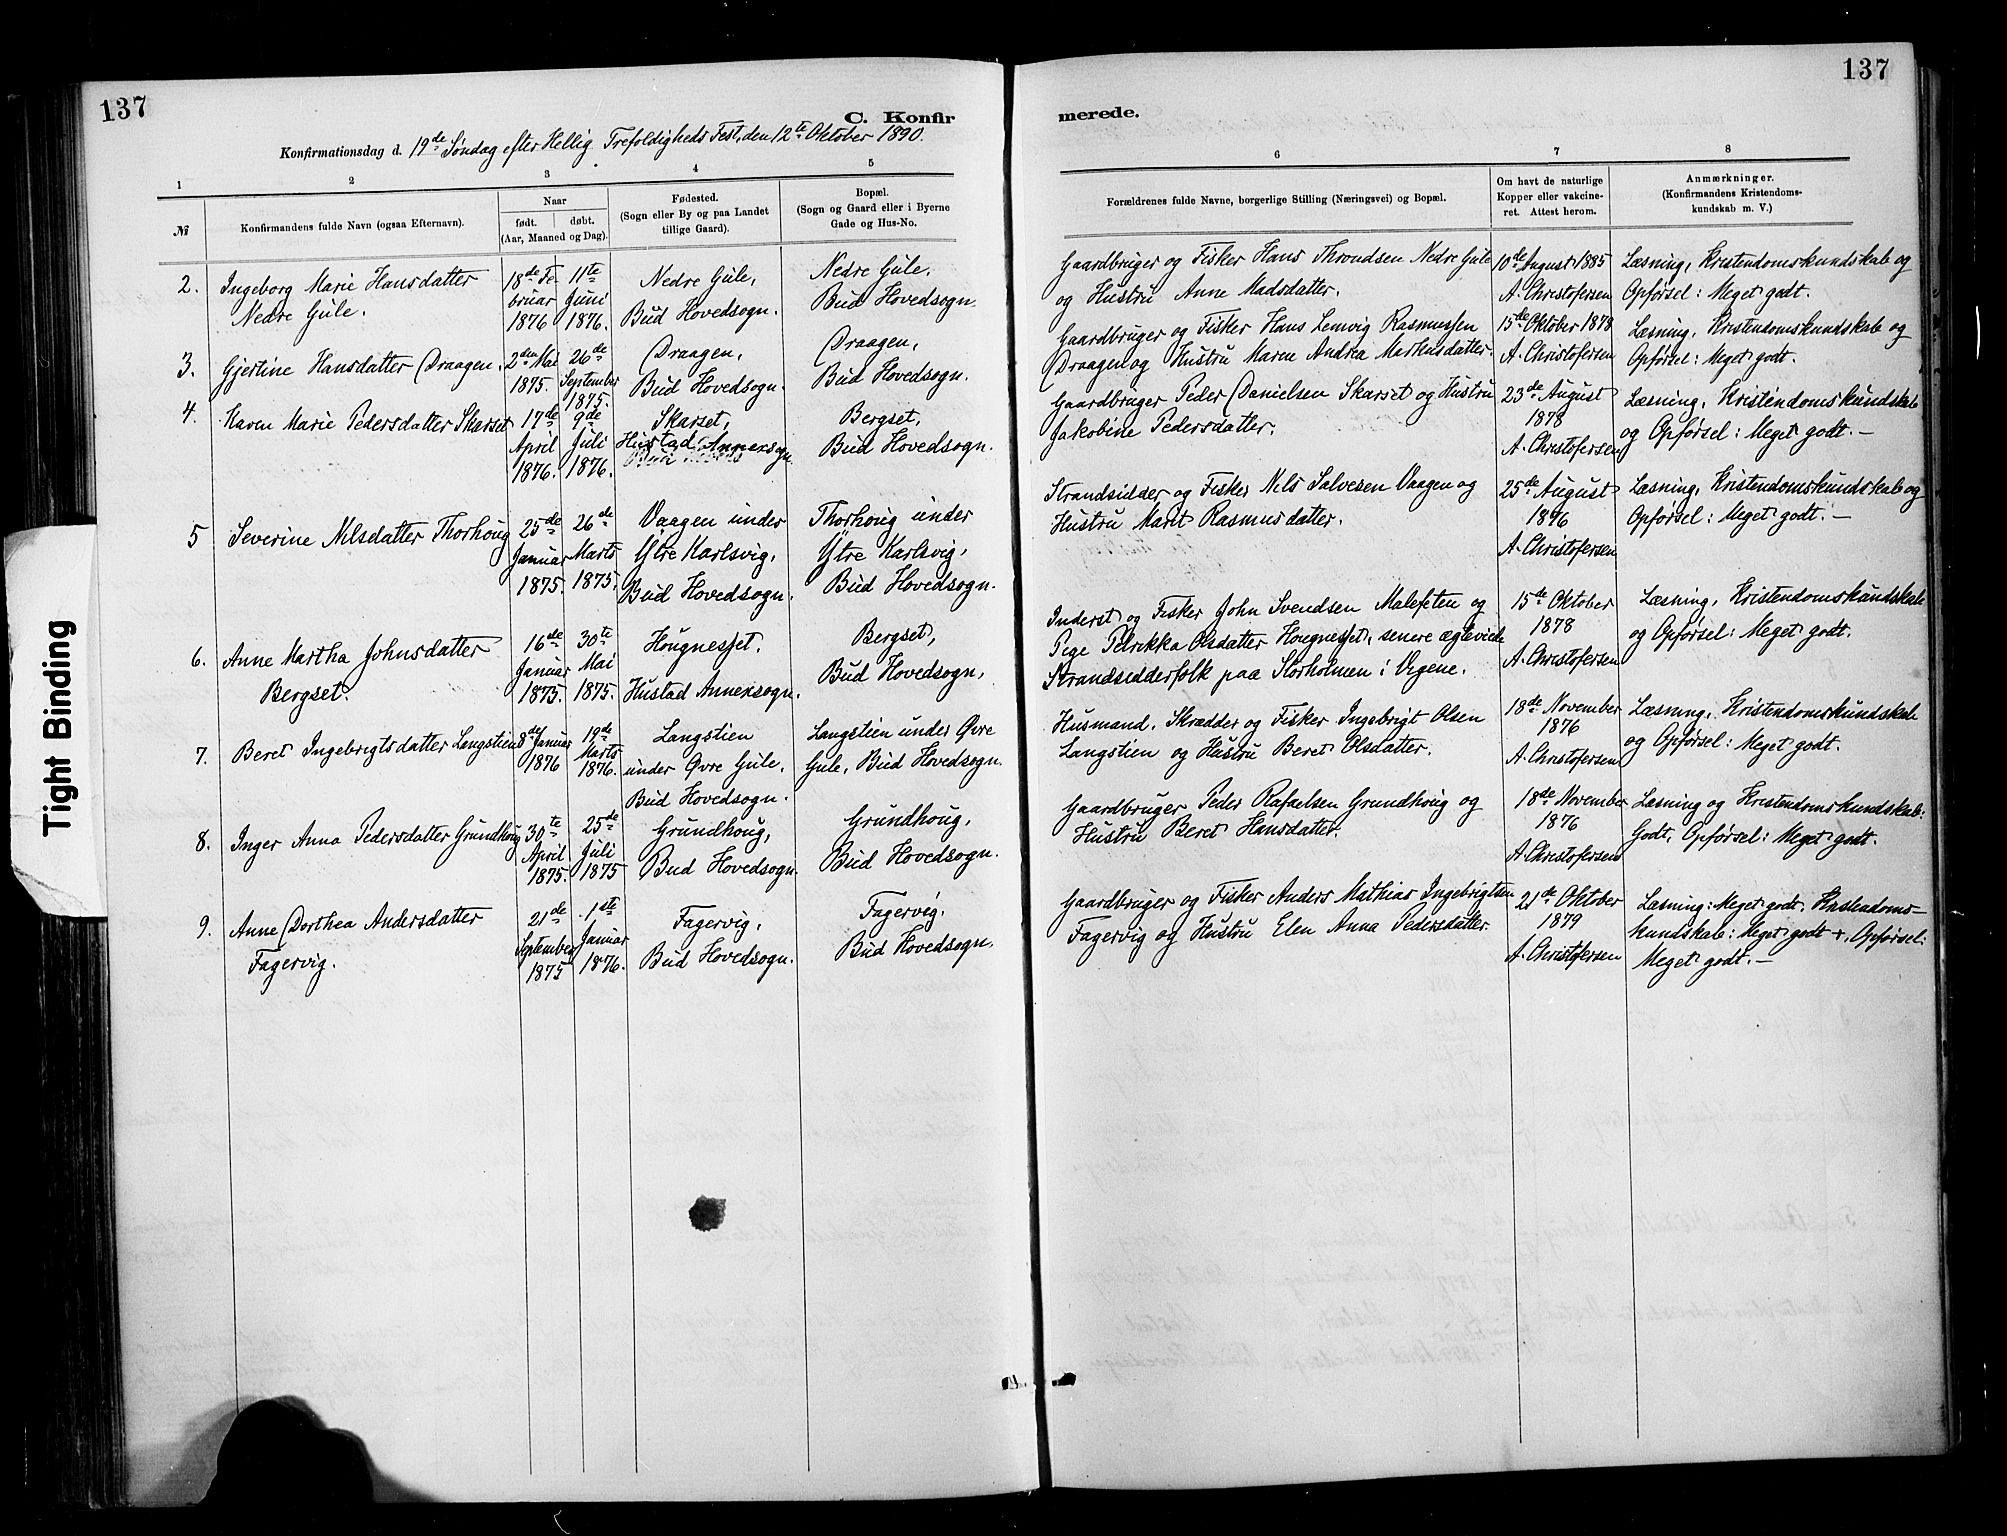 137
137
C. Konfir
merede.
Konfirmationsdag d. 19de Søndag efter Hellig Trefoldigheds Fest, den 12te Oktober 1890.
1 2 3 4 5 6 7 8
№
Konfirmandens fulde Navn (ogsaa Efternavn).
Naar
født. døbt.
(Aar, Maaned og Dag).
Fødested.
(Sogn eller By og paa Landet
tillige Gaard).
Bopæl.
(Sogn og Gaard eller i Byerne
Gade og Hus-No.
Forældrenes fulde Navne, borgerlige Stilling (Næringsvei) og Bopæl.
Om havt de naturlige
Kopper eller vakcine-
ret. Attest herom.
Anmærkninger.
(Konfirmandens Kristendoms-
kundskab m. V.)
2.
Ingeborg Marie Hansdatter
Nedre Gule.
18de Fe
bruar
1876
11te
Juni
1876.
Nedre Gule,
Bud Hovedsogn.
Nedre Gule,
Bud Hovedsogn.
Gaardbruger og Fisker Hans Throndsen Nedre Gule
og Hustru Anne Madsdatter.
10de August 1885
A. Christofersen
Læsning, Kristendomskundskab og
Opførsel: Meget godt.
3.
Gjertine Hansdatter Draagen.
2den Mai
1875.
26de
September
1875.
Draagen,
Bud Hovedsogn.
Draagen,
Bud Hovedsogn.
Gaardbruger og Fisker Hans Lemvig Rasmussen
Draagen og Hustru Maren Andrea Markusdatter.
15de Oktober 1878
A. Christofersen
Læsning, Kristendomskundskab og
Opførsel: Meget godt.
4.
Karen Marie Pedersdatter Skarset
17de
April
1876.
9de
Juli
1876.
Skarset,
Hustad Annexsogn.
Bergset,
Bud Hovedsogn.
Gaardbruger Peder Danielsen Skarset og Hustru
Jakobine Pedersdatter.
23de August
1878
A. Christofersen
Læsning, Kristendomskundskab
og Opførsel: Meget godt. –
5
Severine Nilsdatter Thorhoug
25de
Januar
1875.
26de
Marts
1875.
Vaagen under
Ytre Karlsvig,
Bud Hovedsogn.
Thorhoug under
Ytre Karlsvig,
Bud Hovedsogn.
Strandsidder og Fisker Nils Salvesen Vaagen og
Hustru Marit Rasmusdatter.
25de August
1876
A. Christofersen
Læsning, Kristendomskundskab og
Opførsel: Meget godt. –
6.
Anne Martha Johnsdatter
Bergset.
16de
Januar
1875.
30te
Mai
1875.
Hougnesjet.
Hustad Annexsogn.
Bergset,
Bud Hovedsogn,
Inderst og Fisker John Svendsen Malefeten og
Pige Petrikka Olsdatter Hougnesjet, senere ægteviede
Strandsidderfolk paa Storholmen i Vegene.
15de Oktober
1878
A. Christofersen
Læsning, Kristendomskundskab
og Opførsel: Meget godt.
7.
Beret Ingebrigtsdatter Langstien
8de Januar
1876
19de
Marts
1876.
Langstien
under Øvre Gule,
Bud Hovedsogn.
Langstien under Øvre
Gule, Bud Hovedsogn.
Husmand, Skrædder og Fisker Ingebrigt Olsen
Langstien og Hustru Beret Olsdatter.
18de November
1876
A. Christofersen
Læsning, Kristendomskundskab
og Opførsel: Meget godt.
8.
Inger Anna Pedersdatter Grundhoug
30te
April
1875.
25de
Juli
1875
Grundhoug,
Bud Hovedsogn.
Grundhoug,
Bud Hovedsogn.
Gaardbruger Peder Rafaelsen Grundhoug og
Hustru Beret Hansdatter.
18de November
1876
A. Christofersen
Læsning og Kristendomskundskab:
Godt, Opførsel: Meget godt.
9.
Anne Dorthea Andersdatter
Fagervig.
21de
September
1875
1ste
Januar
1876.
Fagervig,
Bud Hovedsogn.
Fagervig,
Bud Hovedsogn.
Gaardbruger og Fisker Anders Mathias Ingebrigtsen
Fagervig og Hustru Elen Anna Pedersdatter.
21de Oktober
1879
A. Christofersen
Læsning: Meget godt, Kristendoms-
kundskab: Meget godt +, Opførsel:
Meget godt. –
Tight Binding